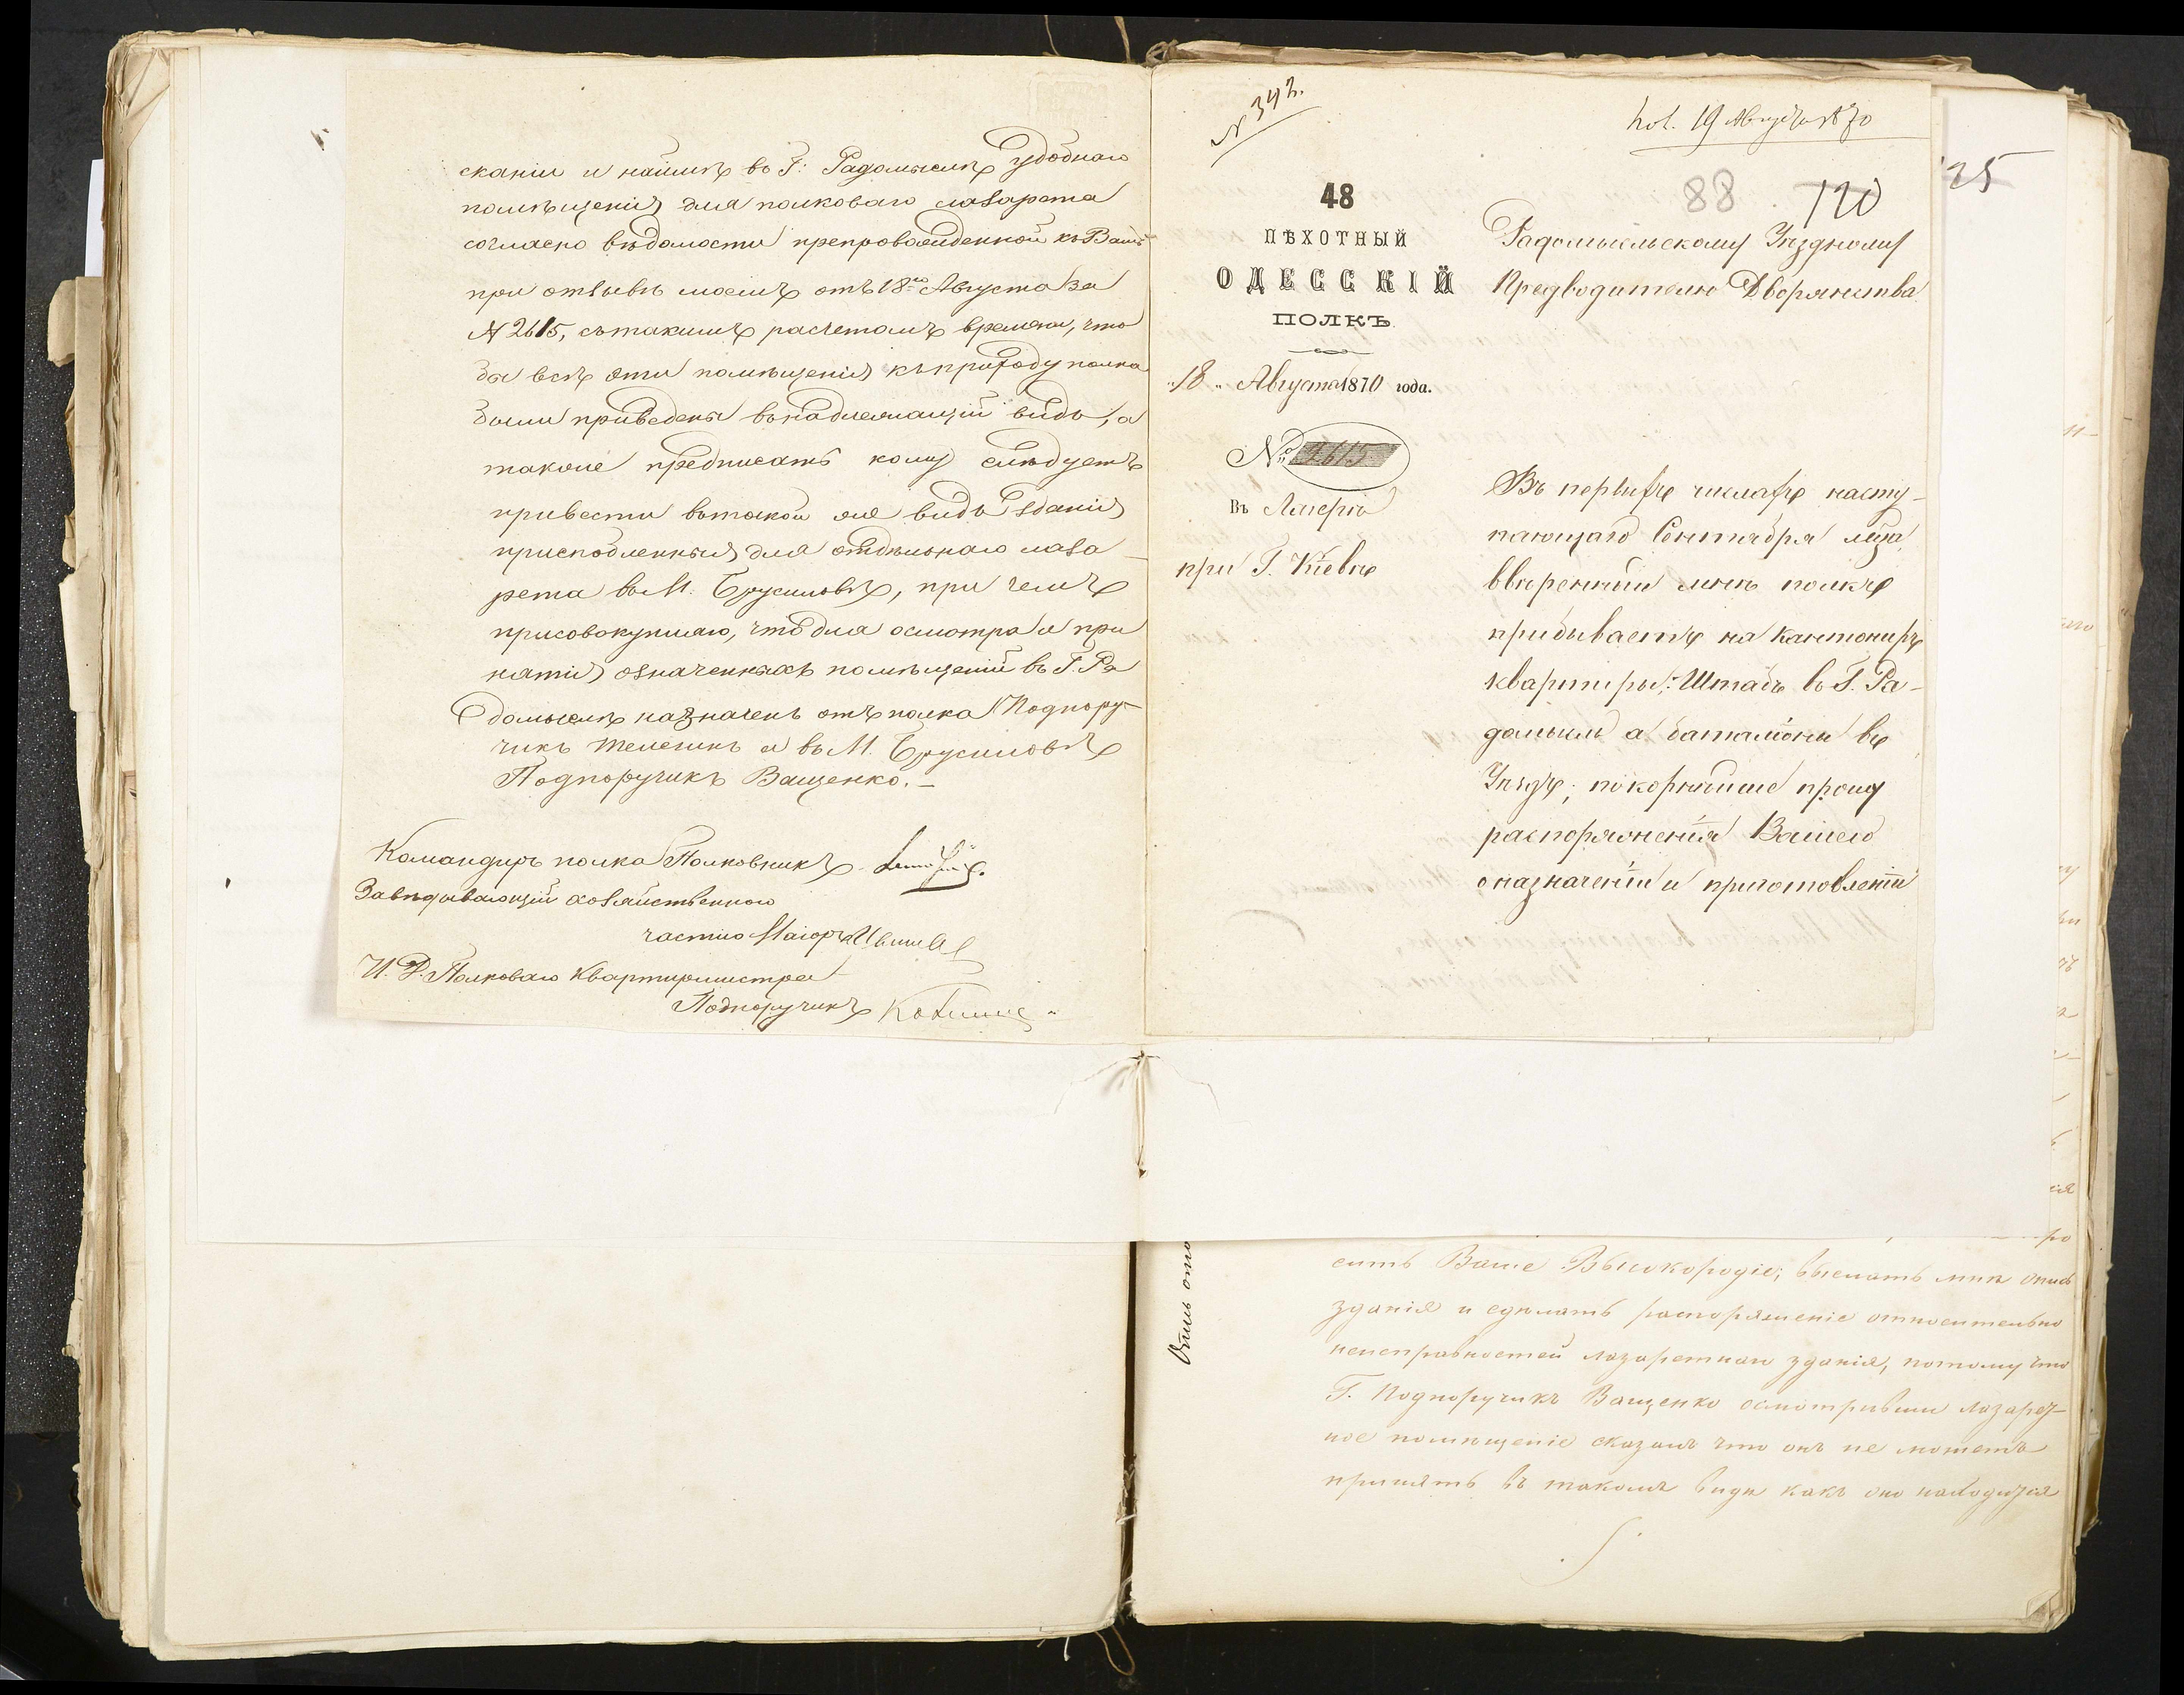 сканіи и наймѣ въ Г: Радомыслѣ удобнаго
помѣщенія для полковаго лазарета
согласно вѣдомости препровожденной къ Вамъ
при отзывѣ моемъ отъ 18го Августа за
№ 2615, съ такимъ расчетомъ времени, что
бы всѣ эти помѣщенія къ приходу полка
были приведены въ надлежащій видъ, а
также предписать кому слѣдуетъ
привести въ такой же видъ зданія
приспобленныя для отдѣльнаго лаза
рета въ М. Брусиловѣ, при чемъ
присовокупляю, что для осмотра и при
нятія означенныхъ помѣщеній въ Г. Ра
домыслѣ назначенъ отъ полка Подпору-
чикъ Телешкъ а въ М. Брусиловѣ
Подпоручикъ Ващенко.
Командиръ полка Полковникъ
Завѣдывающій хозяйственною
частію Маіоръ
И. Д. Полковаго Квартирмистра
Подпоручикъ
№ 342.
Пол. 19 Августа 1870
88 120
125
48
ПѢХОТНЫЙ
ОДЕССКІЙ
ПОЛКЪ
„18„ Августа 1870 года.
№ 2615
Въ Лагерѣ
при Г. Кіевѣ
Радомысльскому Уѣздному
Предводителю Дворянства
Въ первыхъ числахъ насту-
пающаго Сентября м-ца,
ввѣренный мнѣ полкъ
прибываетъ на кантониръ
квартиры: Штабъ въ Г. Ра-
домысль а баталіоны въ
Уѣздъ; покорнѣйше прошу
распоряженія Вашего
о назначеніи и приготовленіи
сить Ваше Высокородіе; выслать мнѣ опись
зданія и сдѣлать распоряженіе относительно
неисправностей лазаретнаго зданія, потому что
Г. Подпоручикъ Ващенко осмотрѣвши лазарет-
ное помѣщеніе сказалъ что онъ не можетъ
принять въ такомъ видѣ какъ оно находится